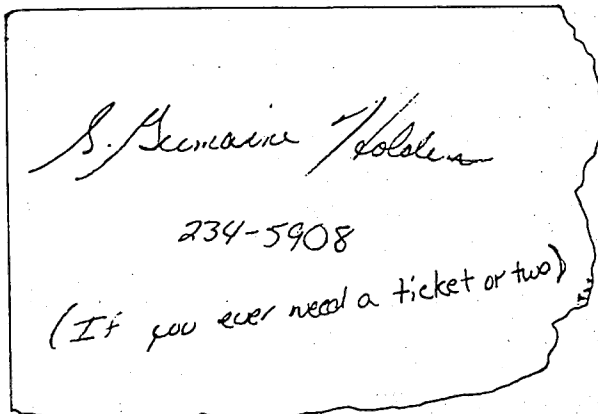 S. Germaine Holden
234-5908
(If you ever need a ticket or two)